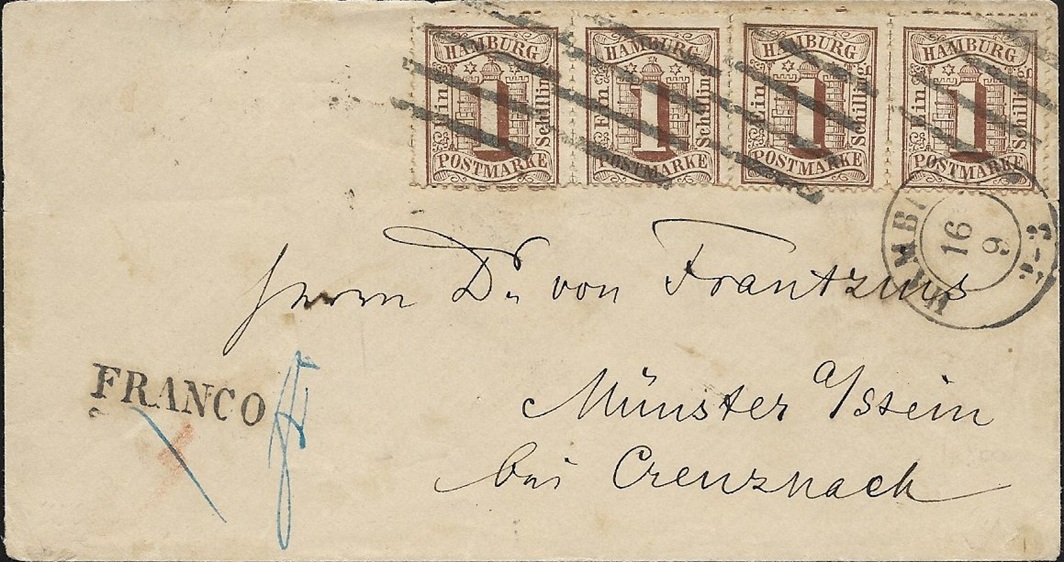 HAMBURG HAMBURG HAMBURG HAMBURG
Ein 1 Schilling Ein 1 Schilling Ein 1 Schilling Ein 1 Schilling
POSTMARKE POSTMARKE POSTMARKE POSTMARKE
HAMBU
16
9
2-3
Herrn Dr. von Frantzius
FRANCO
Münster a/Stein
bei Creuznach